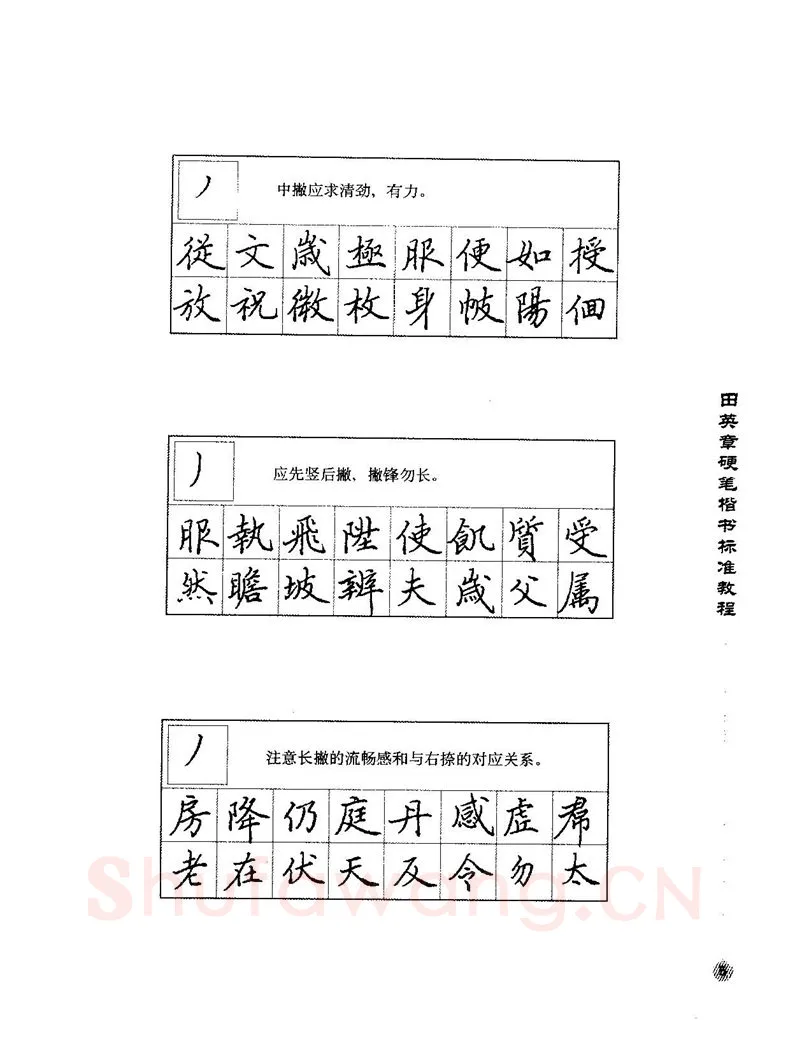 中撇应求清劲，有力。
從文歲極服便如授
放祝微枚身帔陽佪
应先竖后撇，撇锋勿长。
服執飛陞使飢質受
然瞻坡辨夫歲父属
注意长撇的流畅感和与右捺的对应关系。
房降仍庭丹感虚帬
老在伏天及令勿太
田英章硬笔楷书标准教程
Shufawang.CN